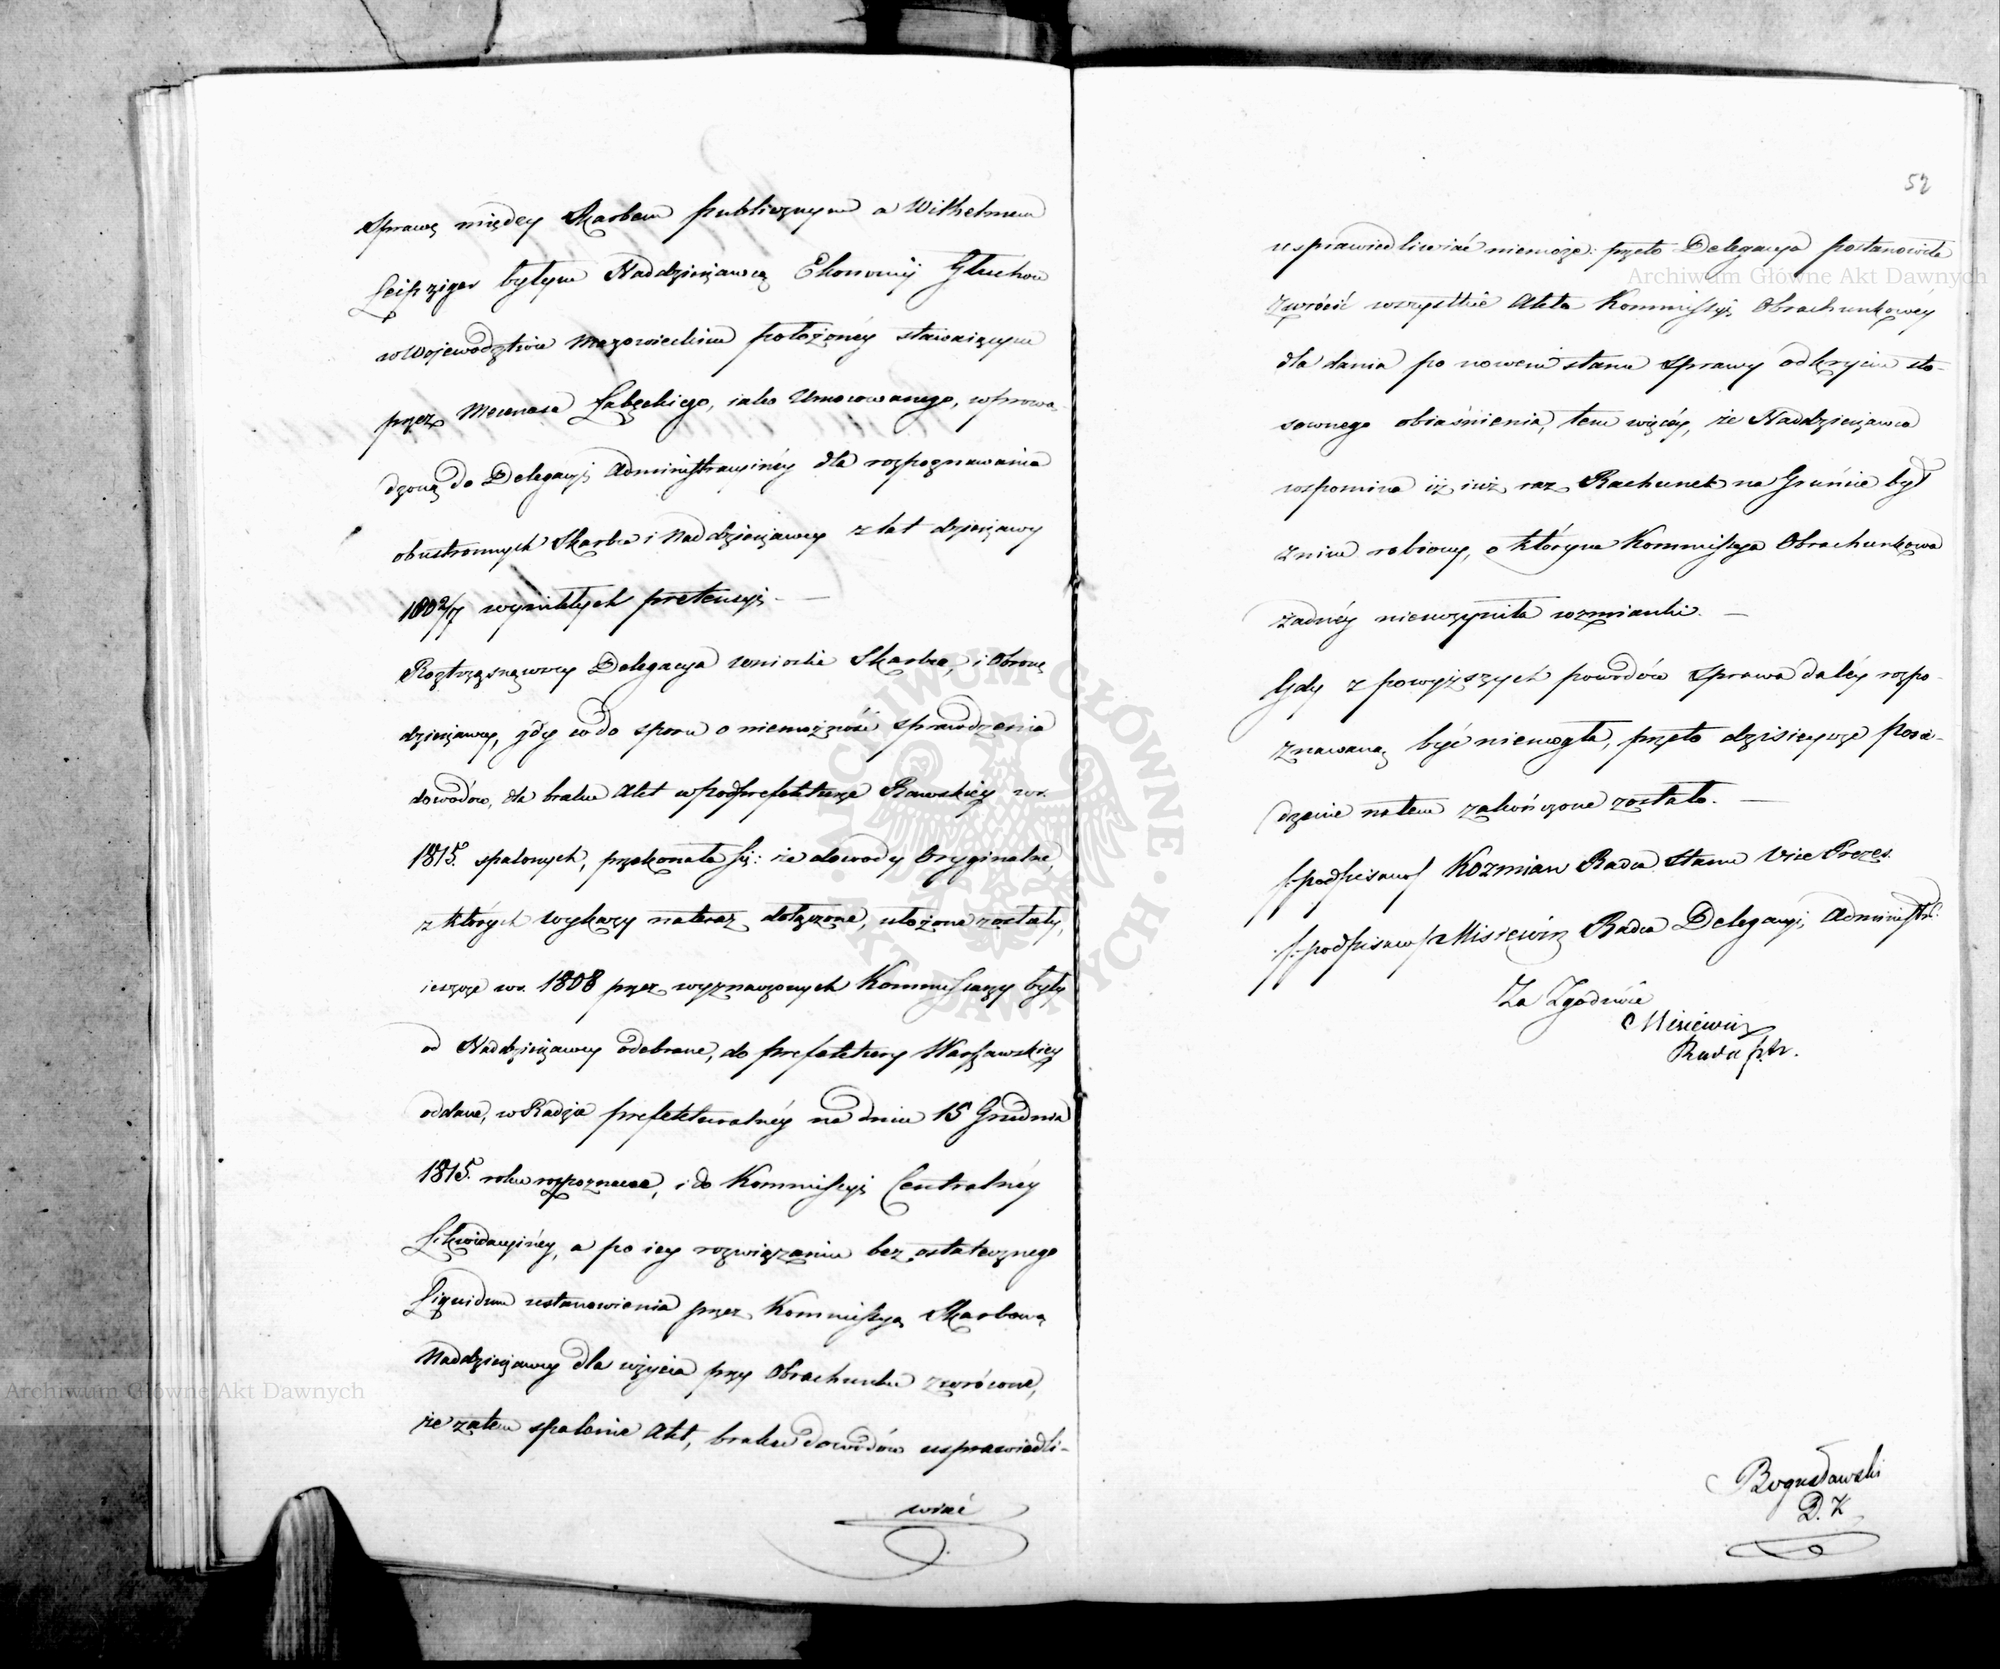 Sprawę między Skarbem publicznym a Wilhelmem
Leipziger byłym Naddzierżawcą Ekonomij Głuchow
w Wojewodztwie Mazowieckim położonéy stawaiącym
przez Mecenasa Łabęckiego, iako Umocowanego, wprowa-
dzoną do Delegacyi Administracyinéy dla rozpoznawania
obustronnych Skarbu i Naddzierżawcy z lat dzierżawy
1802/7 wynikłych pretensyi. —
Roztrząsnąwszy Delegacya wnioski Skarbu, i Obronę
dzierżawcy, gdy co do sporu o niemożność sprawdzenia
dowodów, dla braku Akt w podprefekturze Rawskiey w r.
1815. spalonych, przekonała się: że dowody Oryginalne,
z których wykazy na teraz dołączone, ułożone zostały,
ieszcze w r. 1808 przez wyznaczonych Kommissarzy były
od Naddzierżawcy odebrane, do prefektury Warszawskiey
oddane, w Radzie prefekturalnéy na dniu 15 Grudnia
1815. roku rozpoznane, i do Kommissyi Centralnéy
Likwidacyinéy, a po iey rozwiązaniu bez ostatecznego
Liquidum ustanowienia przez Kommissyą Skarbową
Naddzierżawcy dla użycia przy Obrachunku zwrócone,
że zatem spalenie Akt, braku dowodów usprawiedli-
wiać
52
usprawiedliwiać niemoże: przeto Delegacya postanowiła
zwrócić wszystkie Akta Kommissyi Obrachunkowéy
dla dania po nowem stanu Sprawy odkryciu sto-
sownego obiaśnienia, tem więcéy, że Naddzierżawca
wspomina iż iuż raz Rachunek na Gruńcie był
z nim robiony, o którym Kommissya Obrachunkowa
żadnéy nieuczyniła wzmianki. —
Gdy z powyższych powodów Sprawa daléy rozpo-
znawaną być niemogła, przeto dzisieysze Posie-
dzenie na tem zakończone zostało. —
/:podpisano/ Kozmian Radca Stanu Vice Prezes.
/:podpisano/ Misiewicz Radca Delegacyi Administr:
Za Zgodność
Misiewicz
Bogusławski
D. K
Archiwum Główne Akt Dawnych
Archiwum Główne Akt Dawnych
ARCHIWUM GŁÓWNE AKT DAWNYCH